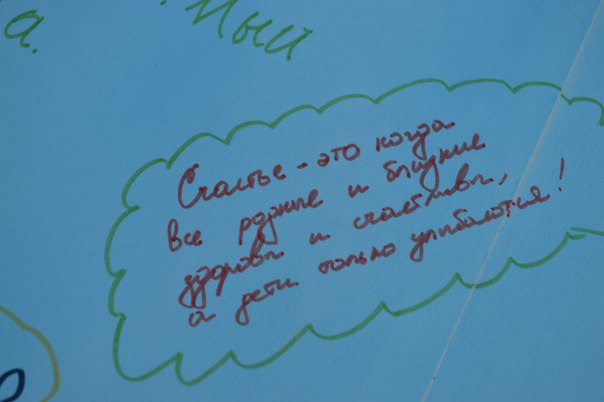 а.
ный
Счастье - это когда
все родные и близкие
здоровы и счастливы,
а дети только улыбаются!